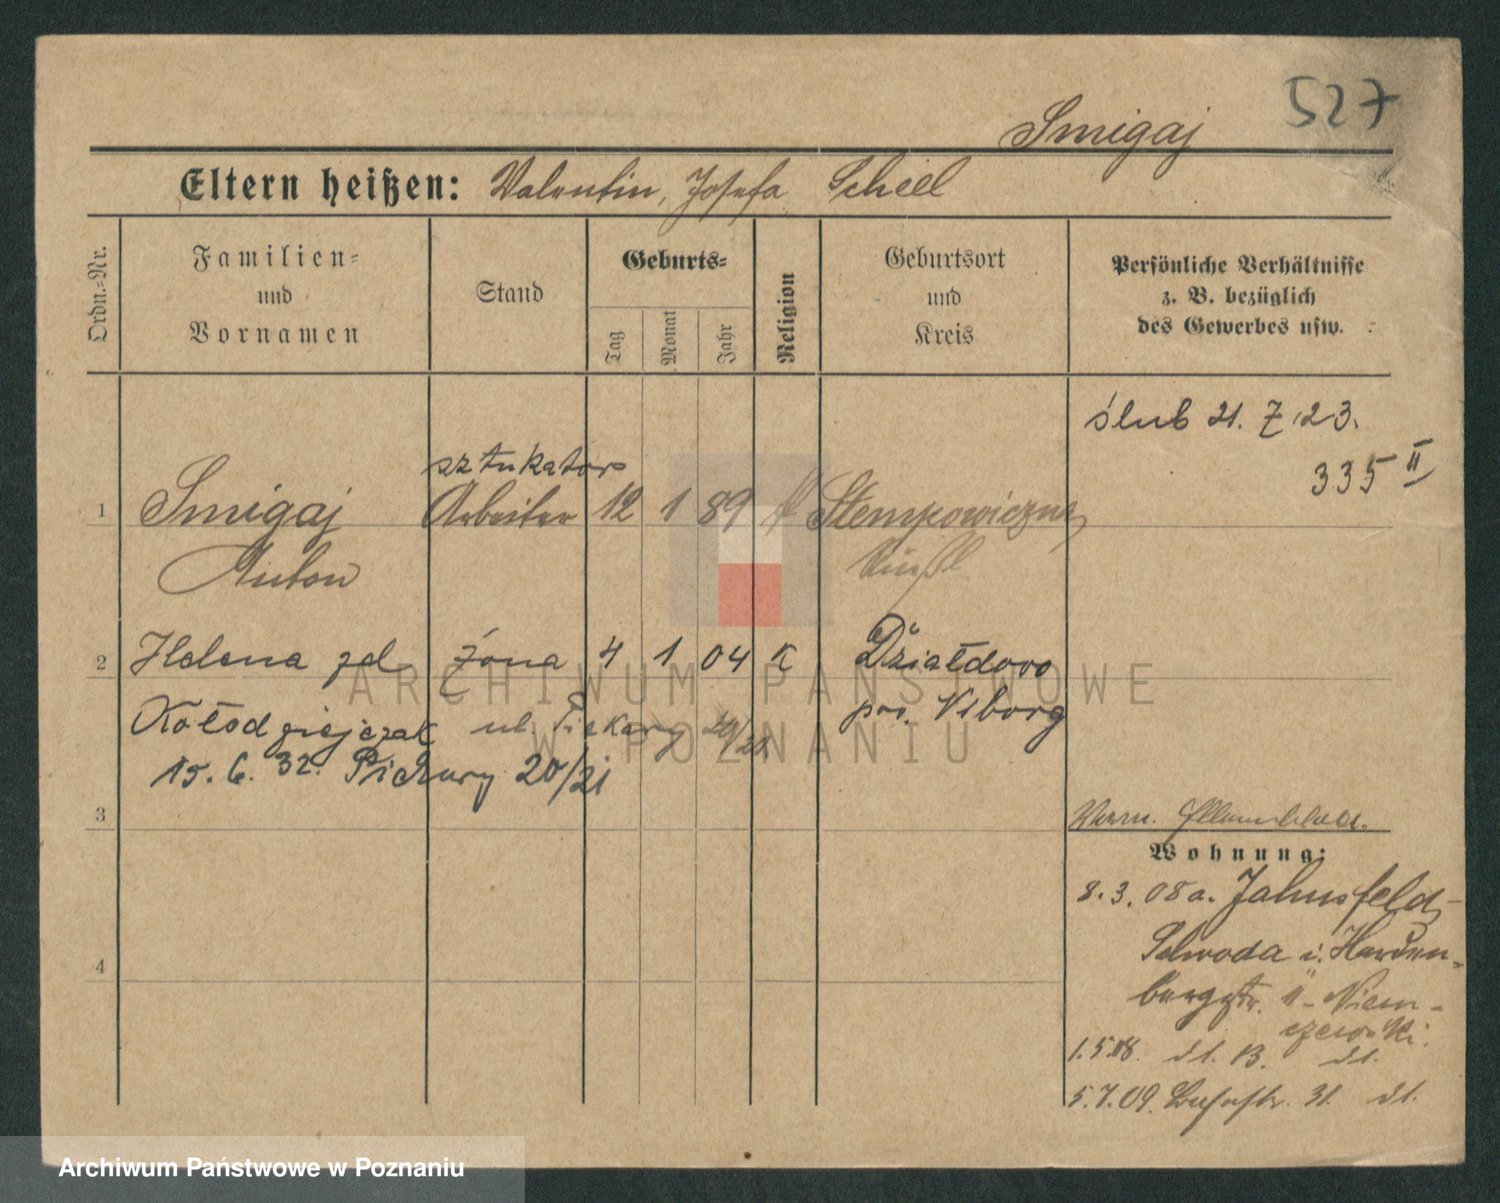 527
Smigaj
Eltern heißen: Valentin, Josefa Scheel
Ordn.-Nr.
Familien-
und
Vornamen
Stand
Geburts-
Tag
Monat
Jahr
Religion
Geburtsort
und
Kreis
Persönliche Verhältnisse
z. B. bezüglich
des Gewerbes usw.
ślub 21. 7. 23.
335 II
sztukator
1 Smigaj Arbeiter 12 1 89 k Stempowiczna
Anton
2 Helena żona 4 1 04 K Działdowo
Kołodziejczak ul. Piekary 20/21 pow.
15. 6. 32. Piekary 20/21
3
Wohnung:
8. 3. 08 a. Jahnsfeld,
Schroda i. Harden-
bergstr. II - Niem-
czewski.
1. 5. 08. dt. B. dt.
5. 7. 09. 31. dt.
4
ARCHIWUM PAŃSTWOWE
W POZNANIU
Archiwum Państwowe w Poznaniu